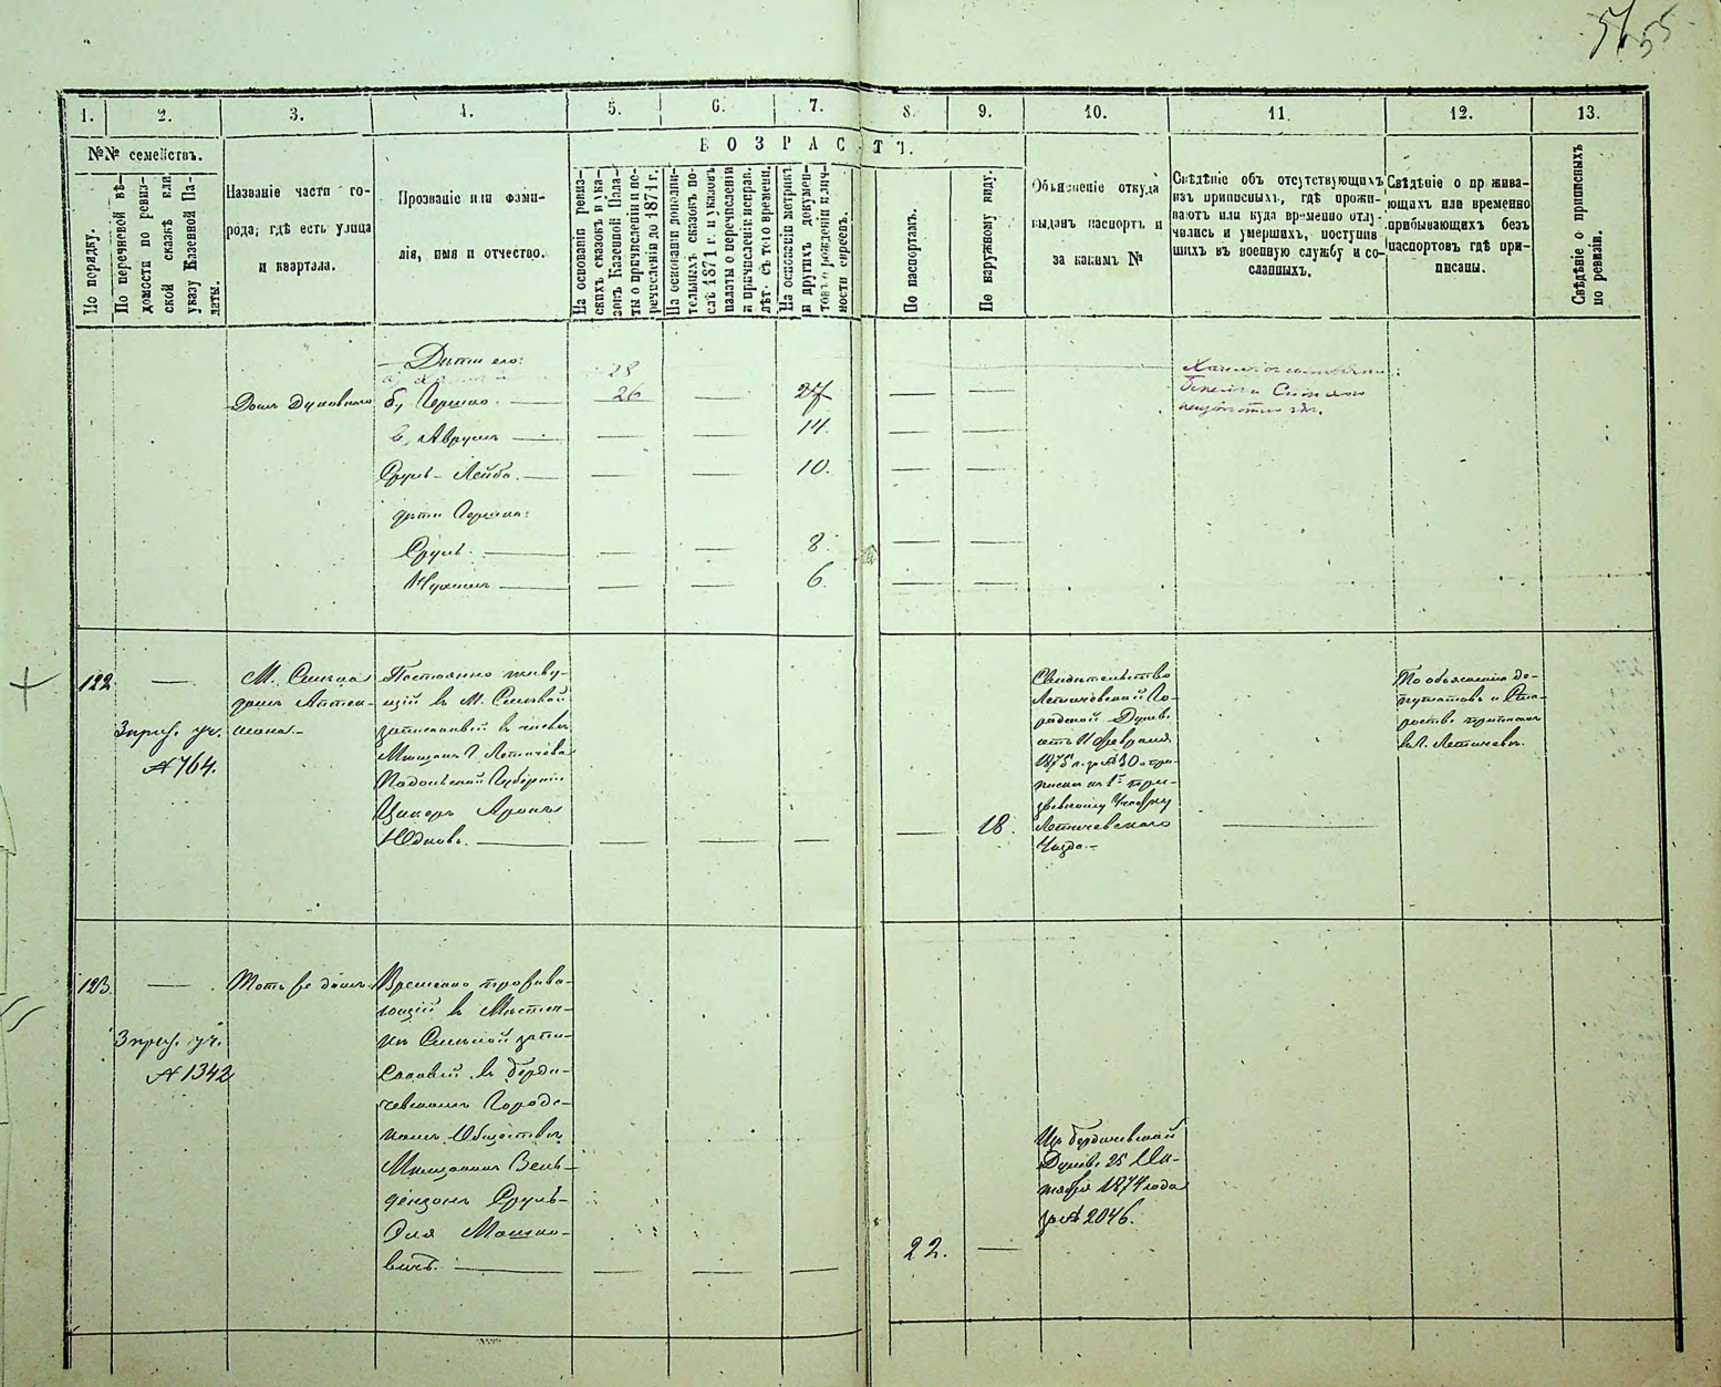 55
1. 2. 3. 4. 5. 6. 7. 8. 9. 10. 11. 12. 13.
№№ семействъ.
По порядку.
По перечневой вѣ-
домости по ревиз-
ской сказкѣ или
указу Казенной Па-
латы.
Названіе части го-
рода, гдѣ есть улица
и квартала.
Прозваніе или фами-
лія, имя и отчество.
ВОЗРАСТЪ.
На основаніи ревиз-
скихъ сказокъ и ука-
зовъ Казенной Пала-
ты о причисленіи и пе-
речисленіи до 1871 г.
На основаніи дополни-
тельныхъ сказокъ по-
слѣ 1871 г. и указовъ
палаты о перечисленіи
и причисленіи исправ.
лѣт. съ того времени.
На основаніи метрикъ
и другихъ докумен-
товъ о рожденіи и лич-
ности евреевъ.
По паспортамъ.
По наружному виду.
Объясненіе откуда
выданъ паспортъ и
за какимъ №
Свѣдѣніе объ отсутствующихъ
изъ приписныхъ, гдѣ прожи-
ваютъ или куда временно отлу-
чились и умершихъ, поступив
шихъ въ военную службу и со-
сланныхъ.
Свѣдѣніе о пр жива-
ющихъ или временно
прибывающихъ безъ
паспортовъ гдѣ при-
писаны.
Свѣдѣніе о приписныхъ
по ревизіи.
Дѣти его:
28
Домъ Духовнаго б, Гершко. — 26 — 27 — —
в, Аврумъ — — — 14. — —
Сруль-Лейба. — — — 10. — —
дѣти Гершка:
Сруль. — — — 8. — —
Нухимъ — — — 6. — —
122 —
3 приз. уч.
№ 764.
М.
домъ
Постоянно живу-
щій въ М.
записанный въ числѣ
Мѣщанъ Г. Летичева
Подольской Губерніи
Цикеръ Аронъ
Юдковъ. — — — —
— 18.
Свидѣтельство
Летичевской Го-
родской Думы
отъ 11 Февраля
1875 г. за № 30 о при-
писки къ 1му при-
зывному Участку
Летичевскаго
Уѣзда.-
—
По объясненію де-
путатовъ и Ста-
росты приписанъ
въ г. Летичевъ.
123. —
3 приз. уч.
№ 1342
Тотъ же домъ.
Временно прожива-
ющій въ Мѣстеч-
кѣ запи-
санный въ Берди-
чевскомъ Городс-
комъ Обществѣ
Мѣщанинъ Вень-
дензонъ Сруль-
Эля Мошко-
вичъ. — — — —
22. —
Изъ Бердичевской
Думы 25 Ок-
тября 1874 года
за № 2046.